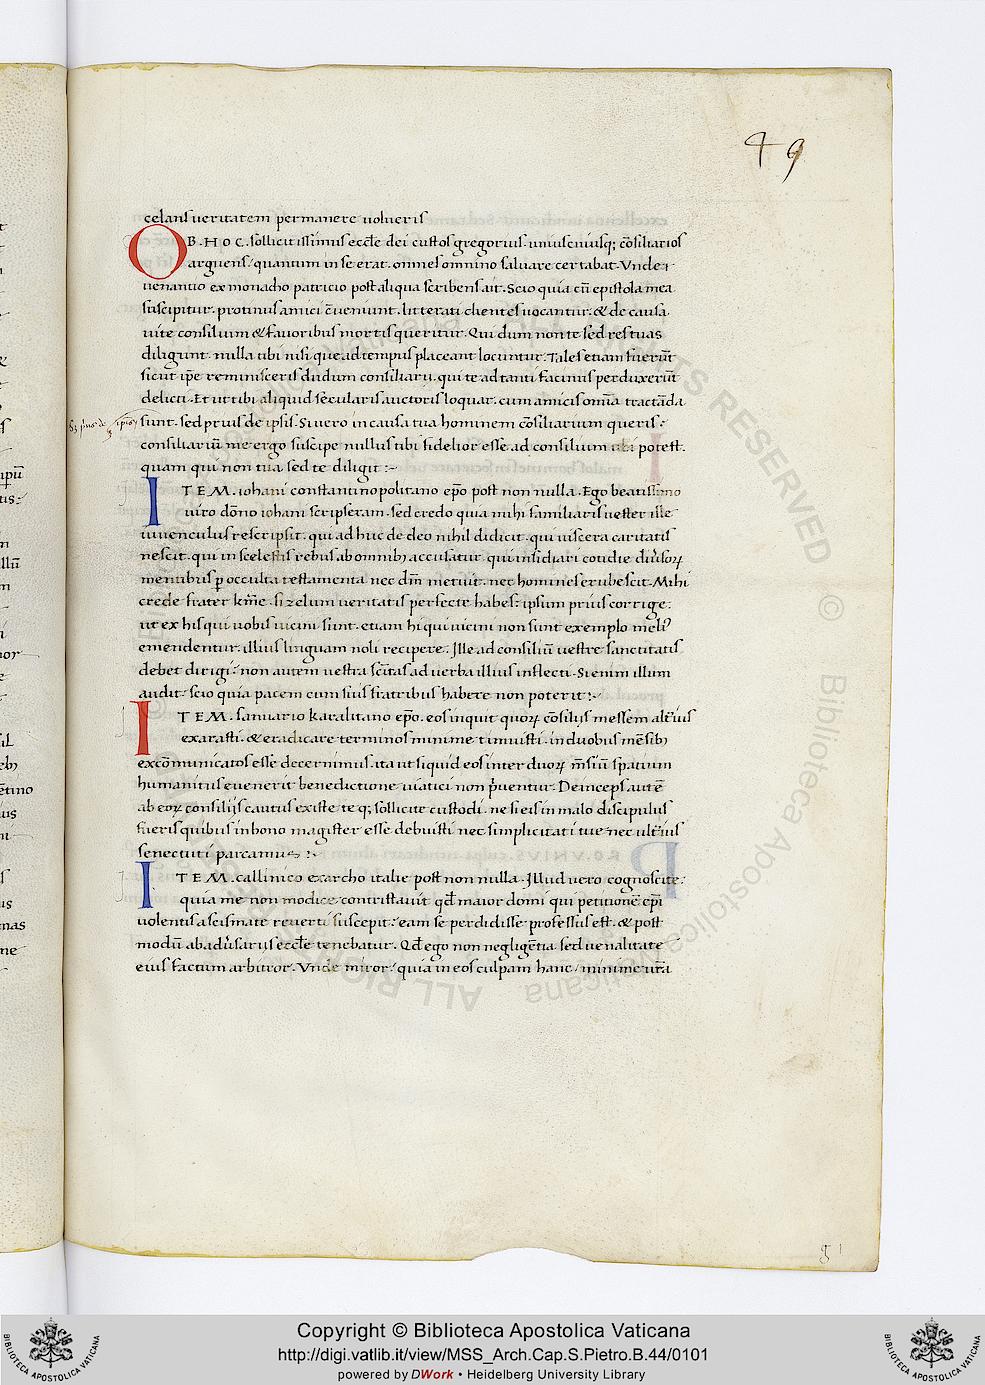 49
celans ueritatem permanere uolueris
OB. HOC. sollicitissimus eccl̄e dei custos gregorius. uniuscuiusq; cōsiliarios
arguens / quantum in se erat. omnes omnino saluare certabat. Vnde &
uenantio ex monacho patricio post aliqua scribens ait. Scio quia cū epistola mea
suscipitur. protinus amici c̄ueniunt. litterati clientes uocantur. & de causa
uite consilium & fauoribus mortis queritur. Qui dum non te sed res tuas
diligunt. nulla tibi nisi que ad tempus placeant locuntur. Tales etiam fuerūt
sicut ip̄e reminisceris dudum consiliarii. qui te ad tanti facinus perduxerūt
delicti. Et ut tibi aliquid secularis auctoris loquar. cum amicis om̄ia tractāda
sunt. sed prius de ipsis. Si uero in causa tua hominem cōsiliarium queris:
consiliariū me ergo suscipe nullus tibi fidelior esse ad consilium tibi potest.
quam qui non tua sed te diligit :~
ITEM. iohani constantinopolitano ep̄o post non nulla. Ego beatissimo
uiro dōno iohani scripseram. sed credo quia mihi familiaris uester ille
iuuenculus rescripsit. qui ad huc de deo nihil didicit. qui uiscera caritatis
nescit. qui in scelestis rebus ab omnibꝫ accusatur. qui insidiari cotidie diu̓soꝝ
mentibus ꝑ occulta testamenta nec dm̄ metuit. nec homines erubescit. Mihi
crede frater km̄e. si zelum ueritatis perfecte habes: ipsum prius corrige:
ut ex his qui uobis uicini sunt. etiam hi qui uicini non sunt exemplo meli᾿
emendentur. illius linguam noli recipere: Ille ad consiliū uestre sanctitatis
debet dirigi: non autem uestra sc̄itas ad uerba illius inflecti. Si enim illum
audit. scio quia pacem cum suis fratribus habere non poterit :~
ITEM. Ianuario karalitano ep̄o. eos inquit quoꝝ cōsiliis messem alt̄ius
exarasti. & eradicare terminos minime timuisti. in duobus mēsibꝫ
excōmunicatos esse decernimus. ita ut si quid eos inter duoꝝ m̄siū spatium
humanitus euenerit benedictione uiatici non p̓uentur. Deinceps aut̄
ab eoꝝ consiliis cautus existe te q; sollicite custodi. ne si eis in malo discipulus
fueris quibus in bono magister esse debuisti nec simplicitati tue nec ult̄ius
senectuti parcamus :~
ITEM. callinico exarcho italie post non nulla. Illud uero cognoscite:
quia me non modice contristauit qd̄ maior domi qui petitionē ep̄i
uolentis a scismate reuerti suscepit: eam se perdidisse professus est. & post
modū ab adu̓sariis eccl̄e tenebatur. Qd̄ ego non negligētia sed uenalitate
eius factum arbitror. Vnde miror / quia in eos culpam hanc / minime ur̄a
g 1
Copyright © Biblioteca Apostolica Vaticana
http://digi.vatlib.it/view/MSS_Arch.Cap.S.Pietro.B.44/0101
powered by DWork • Heidelberg University Library